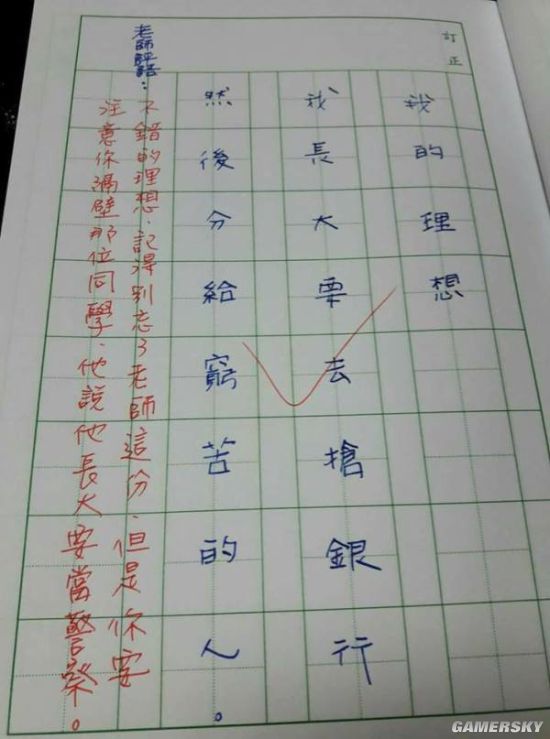 訂正
我的理想
我長大要去搶銀行
然後分給窮苦的人。
老師評語：
不錯的理想，記得別忘了老師這份，但是你要
注意你隔壁那位同學，他說他長大要當警察。
GAMERSKY